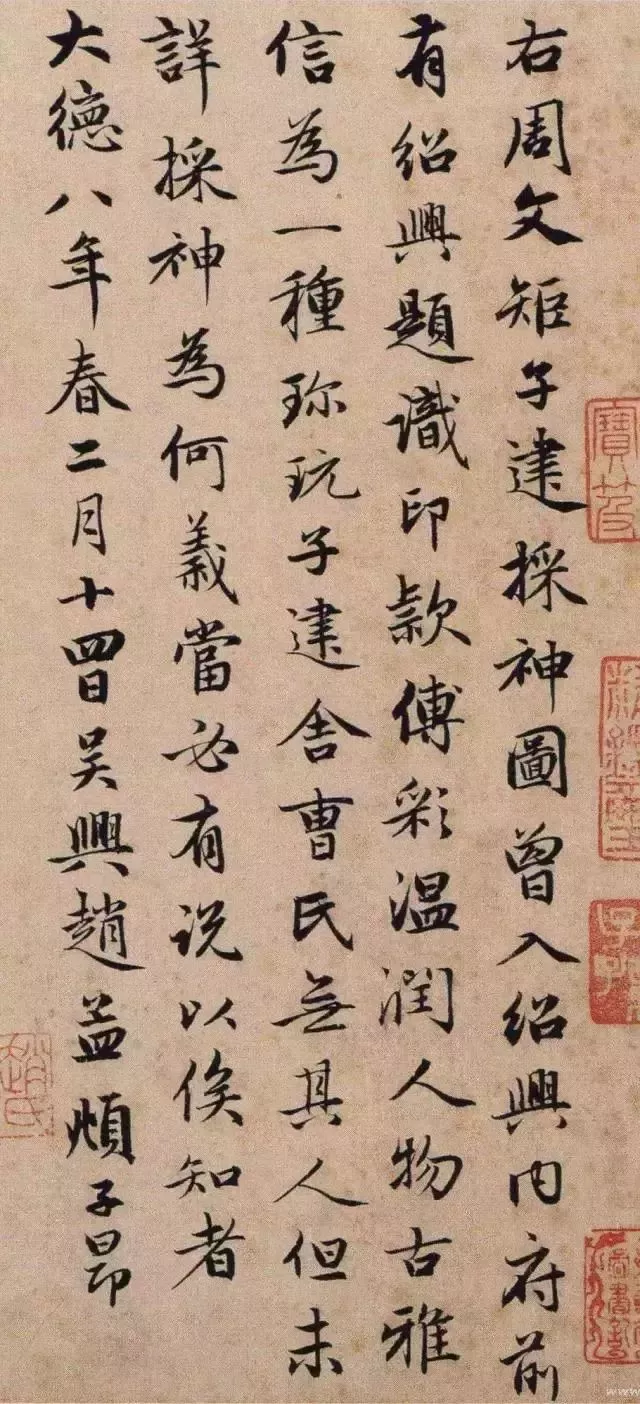 右周文矩子建採神圖曾入紹興內府前
有紹興題識印款傅彩温潤人物古雅
信為一種珎玩子建舍曹氏無其人但未
詳採神為何義當必有説以俟知者
大德八年春二月十四日吴興趙孟頫子昂
趙氏
www.